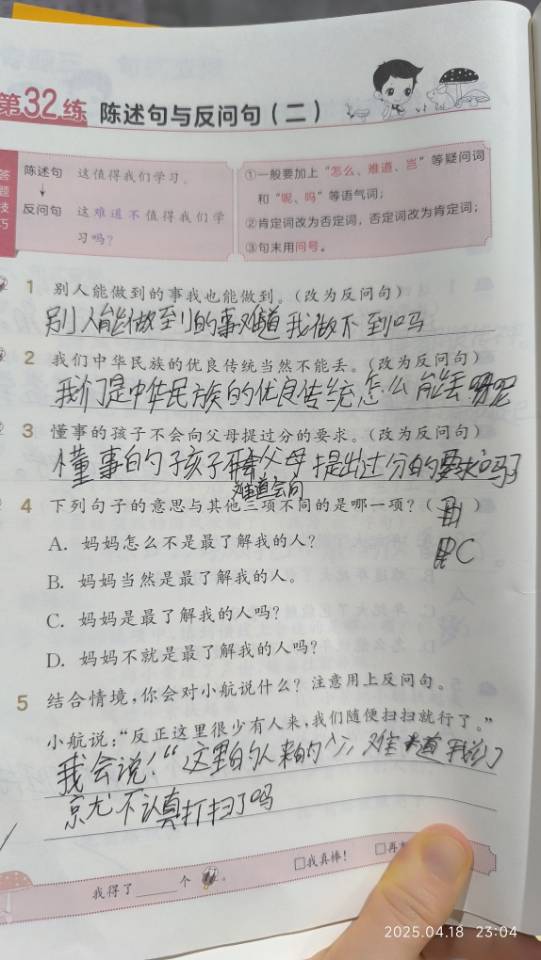 第32练 陈述句与反问句（二）
答题技巧
陈述句 这值得我们学习。
↓
反问句 这难道不值得我们学
习吗？
①一般要加上“怎么、难道、岂”等疑问词
和“呢、吗”等语气词；
②肯定词改为否定词，否定词改为肯定词；
③句末用问号。
1 别人能做到的事我也能做到。（改为反问句）
别人能做到的事难道我做不到吗
2 我们中华民族的优良传统当然不能丢。（改为反问句）
我们是中华民族的优良传统怎么能丢呢
3 懂事的孩子不会向父母提过分的要求。（改为反问句）
懂事的孩子父母提出过分的要求吗
难道会向
4 下列句子的意思与其他三项不同的是哪一项？（ ）
A. 妈妈怎么不是最了解我的人？
C
B. 妈妈当然是最了解我的人。
C. 妈妈是最了解我的人吗？
D. 妈妈不就是最了解我的人吗？
5 结合情境，你会对小航说什么？注意用上反问句。
小航说：“反正这里很少有人来，我们随便扫扫就行了。”
我会说：“这里的人来的少，难道我们
京尤不认真打扫了吗
我得了____个 。
□我真棒！ □再
2025.04.18 23:04